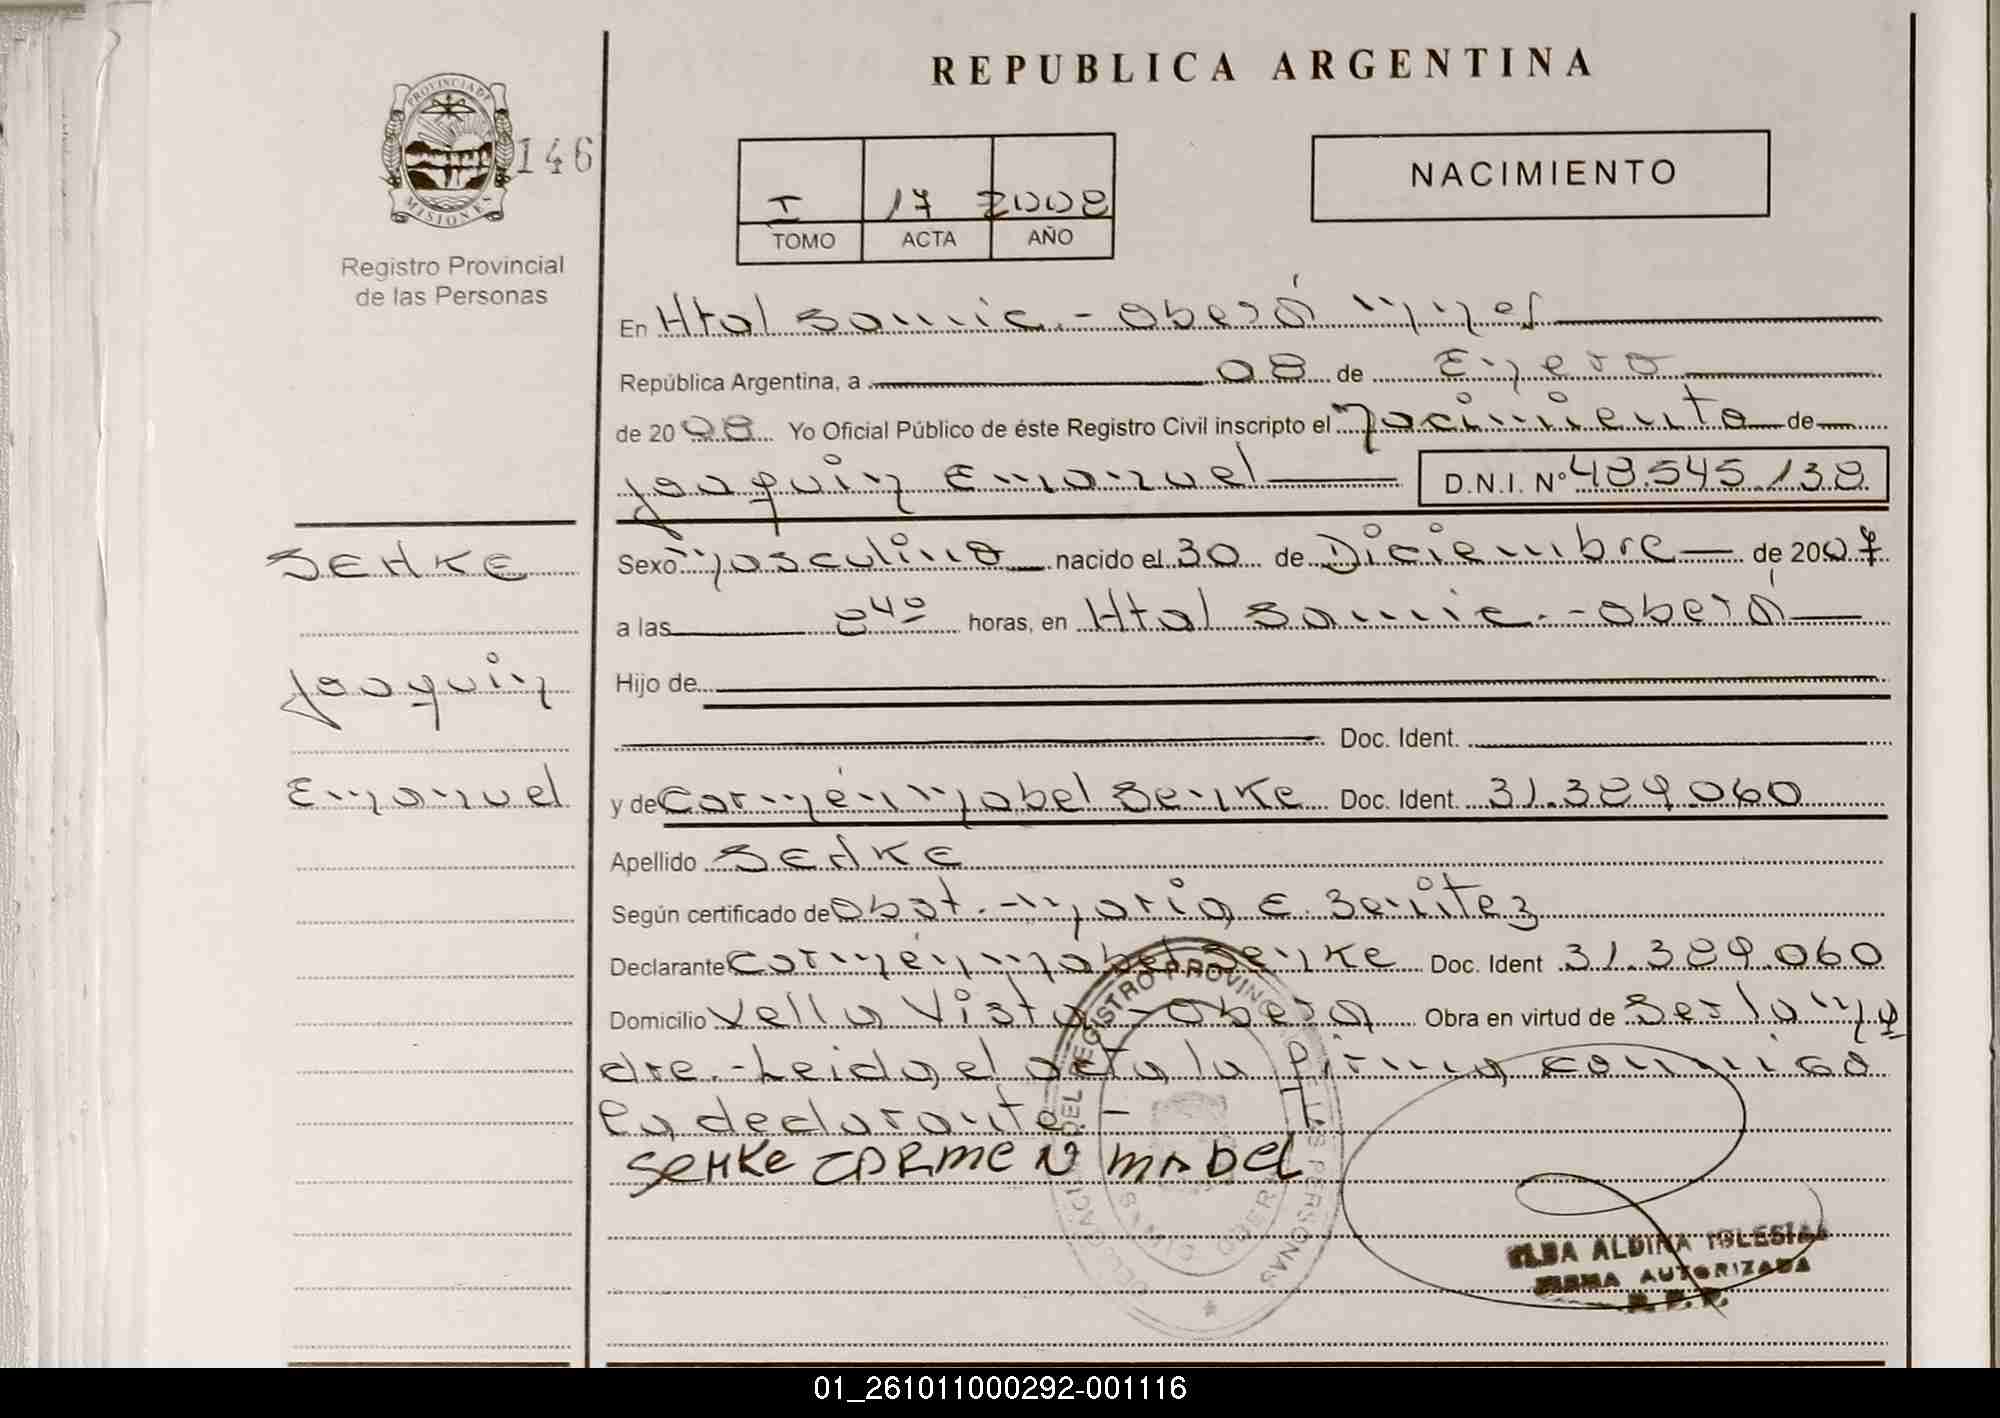 REPUBLICA ARGENTINA
PROVINCIA DE
MISIONES
146
Registro Provincial
de las Personas
I 17 2008
TOMO ACTA AÑO
NACIMIENTO
En Htal Samic.- Oberá Mnes
República Argentina, a 08 de Enero
de 2008 Yo Oficial Público de éste Registro Civil inscripto el Nacimiento de
Joaquin Emanuel D.N.I. Nº 48.545.138
SENKE
Joaquin
Emanuel
Sexo Masculino nacido el 30 de Diciembre de 2007
a las 8 40 horas, en Htal Samic.- Oberá
Hijo de
Doc. Ident.
y de Carmen Mabel Senke Doc. Ident. 31.389.060
Apellido SENKE
Según certificado de Obst.- Maria E. Benitez
Declarante Carmen Mabel Senke Doc. Ident 31.389.060
Domicilio Vella Vista - Oberá Obra en virtud de Ser la Ma
dre.- Leida el acta la firma conmigo
la declarante.-
SENKE CARMEN MABEL
DELEGACION DEL REGISTRO PROVINCIAL DE LAS PERSONAS
OBERA MNES
ELBA ALDINA IGLESIAS
FIRMA AUTORIZADA
R. P. P.
01_261011000292-001116